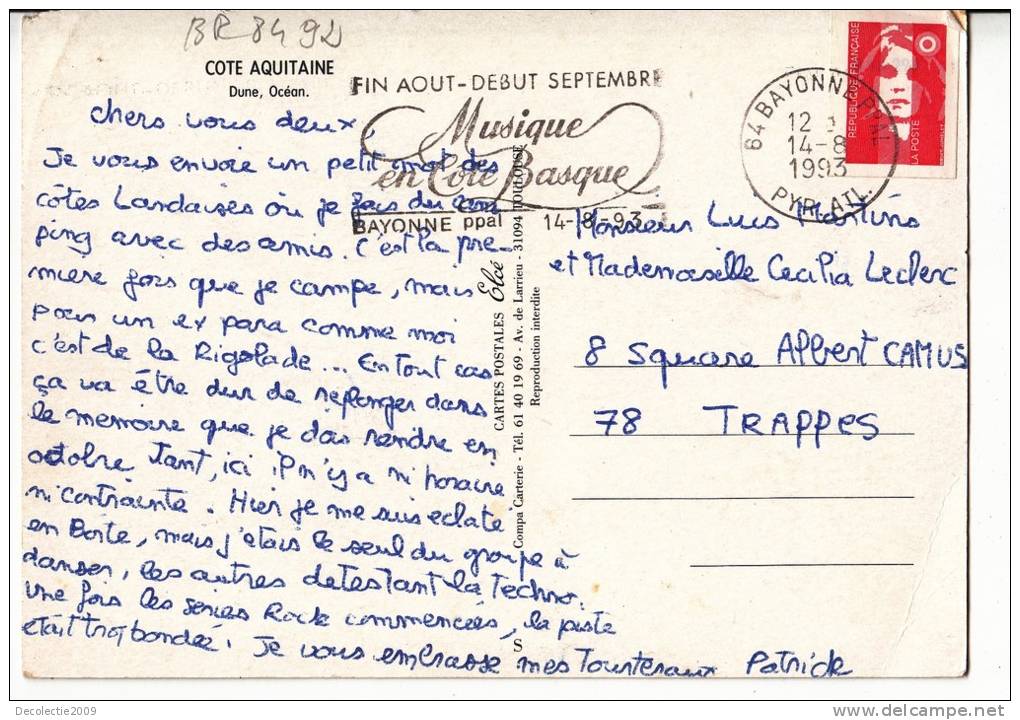 BR 8492
COTE AQUITAINE
Dune, Océan.
FIN AOUT-DEBUT SEPTEMBRE
Musique
en Côte Basque
BAYONNE ppal 14-8-93
64 BAYONNE PPAL
12
14-8
1993
PYR. ATL.
REPUBLIQUE FRANÇAISE
LA POSTE
chers vous deux,
Je vous envoie un petit mot des
côtes Landaises où je fais du cam
ping avec des amis. C'est la pre-
miere fois que je campe, mais
pour un ex para comme moi
c'est de la Rigolade... En tout cas
ça va être dur de replonger dans
le memoire que je dois rendre en
octobre tant, ici il n'y a ni horaire
ni contrainte. Hier je me suis eclate
en Boîte, mais j'etais le seul du groupe à
danser, les autres detestant la Techno.
Une fois les séries Rock commencées, la piste
était trop bondée. Je vous embrasse mes Tourteraux Patrick
CARTES POSTALES Elcé
Compa Carterie - Tél. 61 40 19 69 - Av. de Larrieu - 31094 TOULOUSE
Reproduction interdite
S
Monsieur Luis Martins
et Mademoiselle Cecilia Leclerc
8 square Albert CAMUS
78 TRAPPES
Decolectie2009
delcampe.net